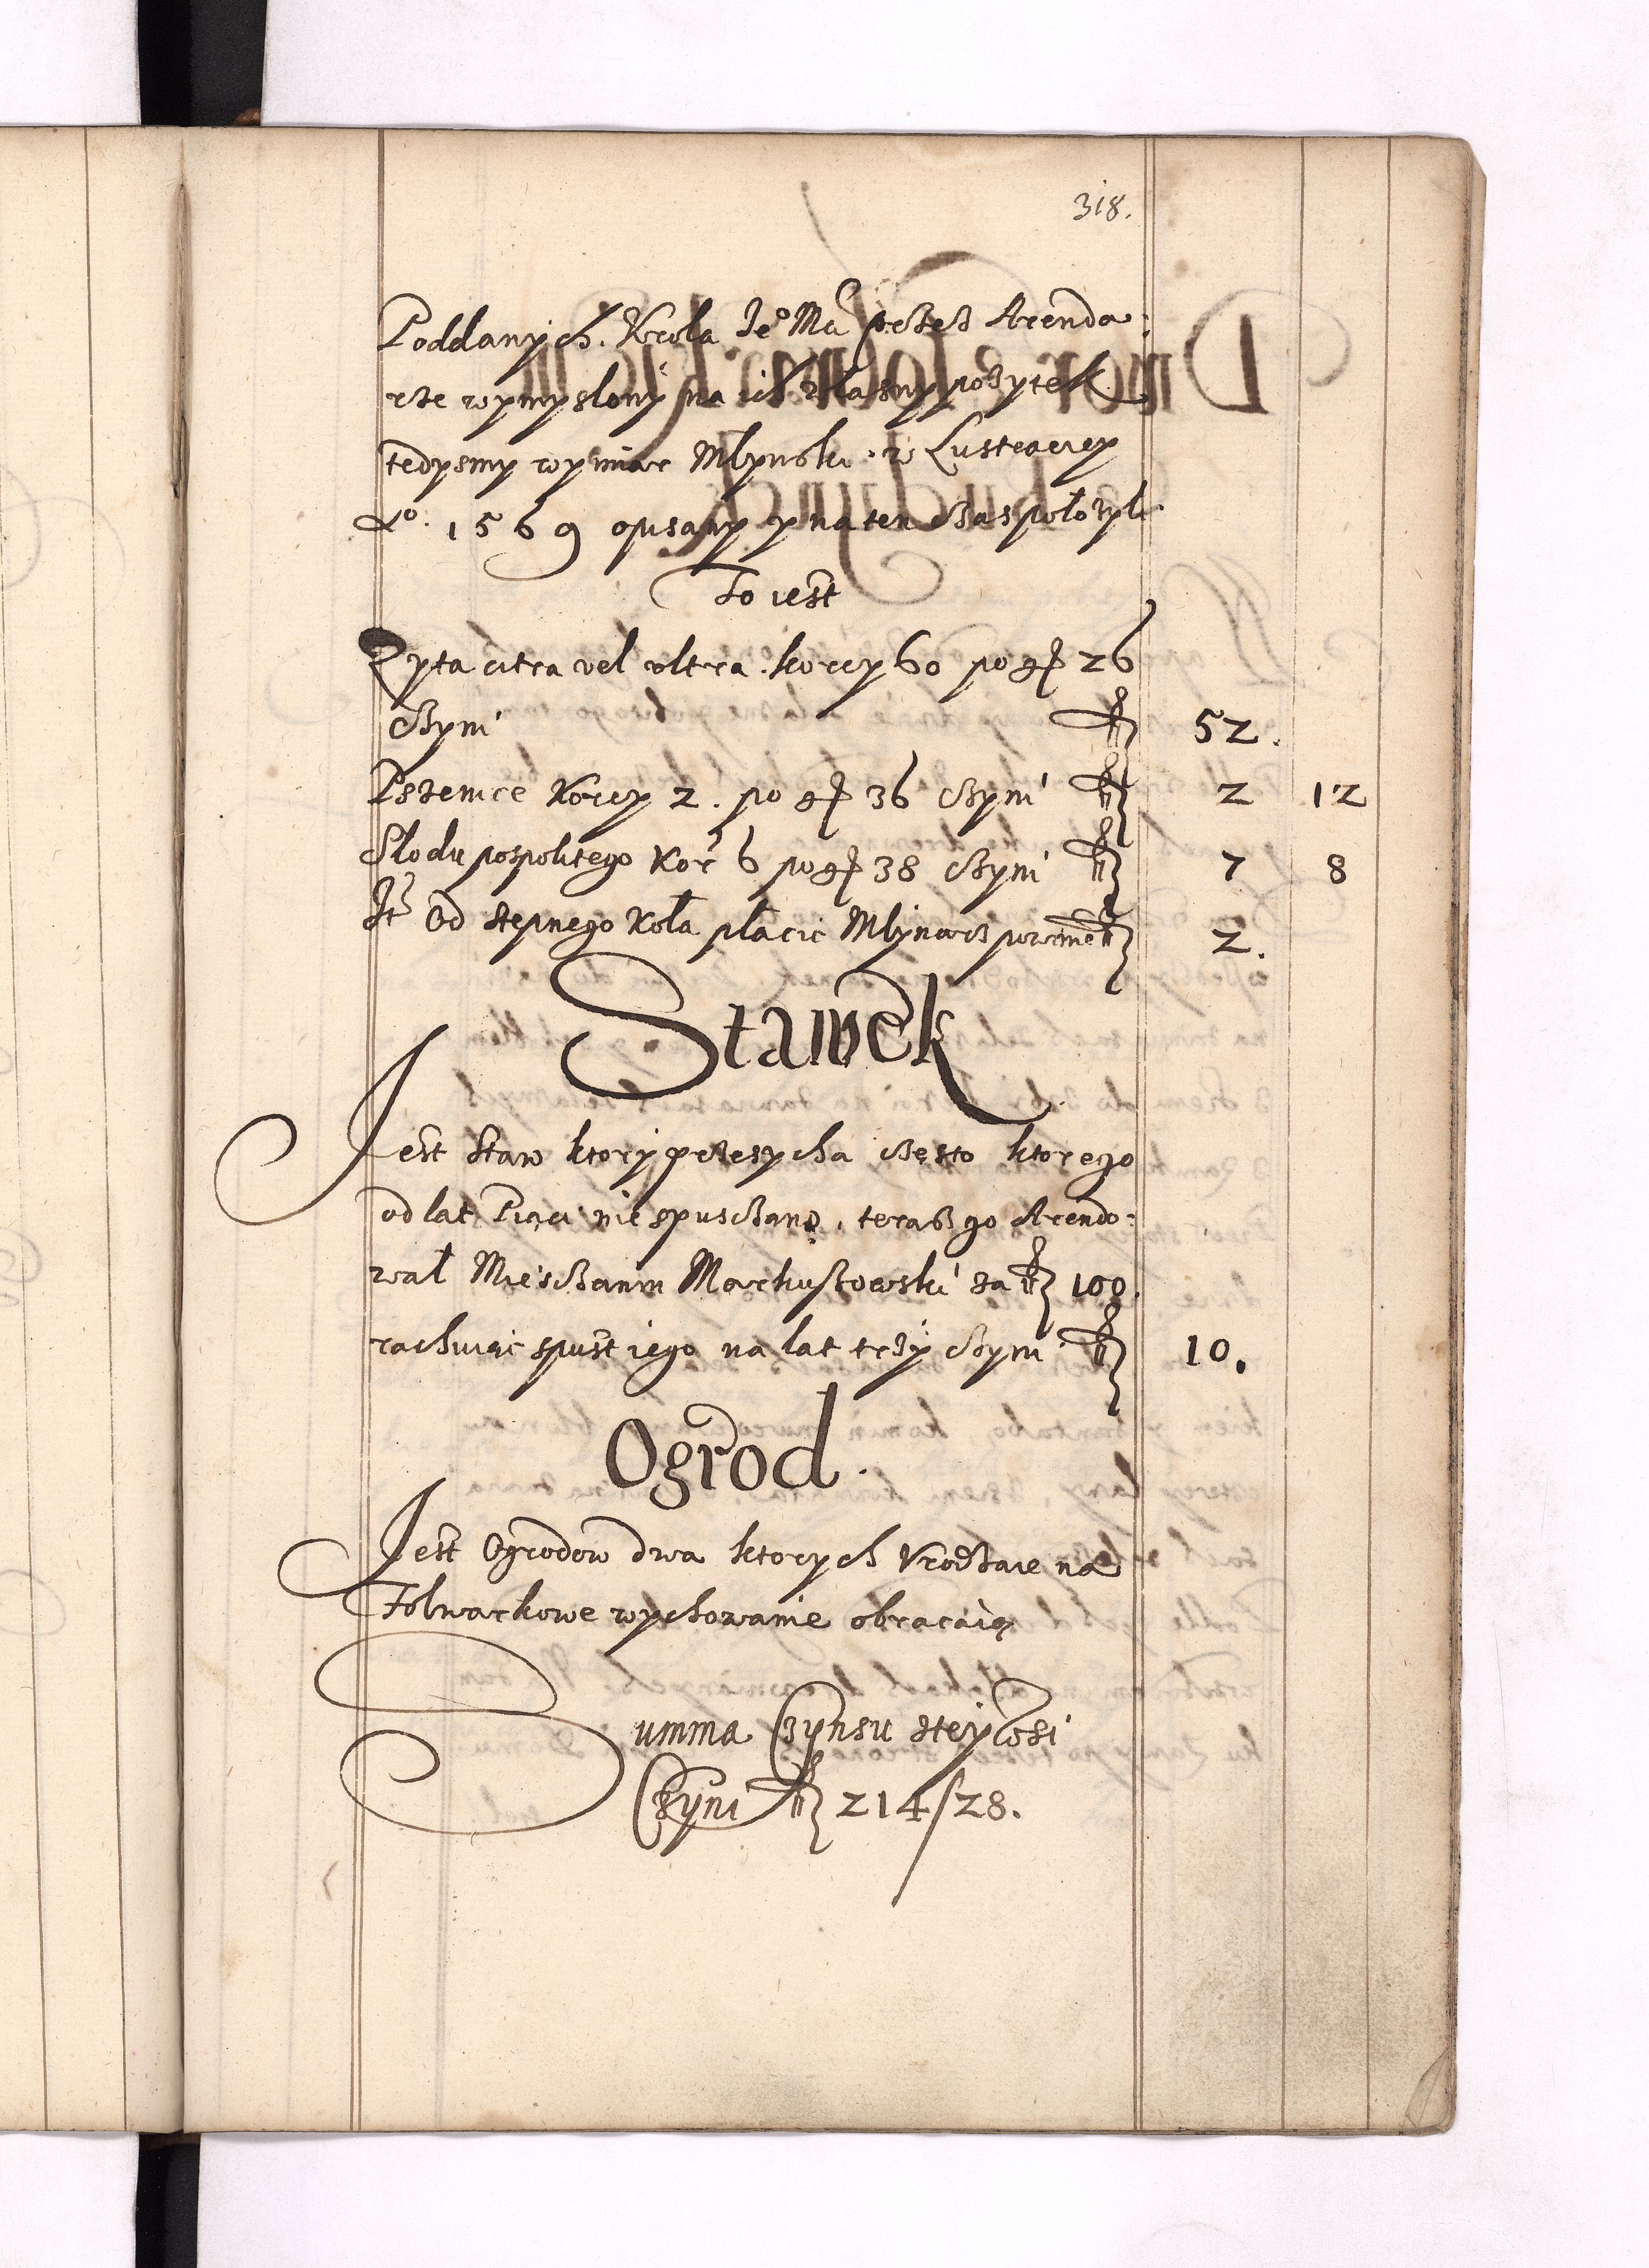 318.
Poddanÿch. Krola Je° Mci przez Arenda:
rze wymyslonÿ na ich własny pozytek
tedysmy wymiar Mlynski z Lustraciey
A°. 1569 opisany y na ten czas położyli
To iest
Zyta citra vel vltra korcy 60 po g 26
czyni fl 52.
Pszenice Korcy 2. po g 36 czyni fl 2 12
Słodu pospolitego Kor 6 po g 38 czyni fl 7 8
It Od stępnego Koła płacić Mlÿnarz powinien fl 2.
Stawek
Jest Staw ktorÿ przesycha często ktorego
od lat Piąci nie spusczano, teraz go Arendo:
wał Miesczanin Markuszowski za fl 100.
rachuiąc spust iego na lat trzÿ czyni fl 10.
Ogrod.
Jest Ogrodow dwa ktorych Vrodzaie na
Folwarkowe wychowanie obracaią
Summa Czÿnsu stey Wsi
Czÿni fl 214/28.